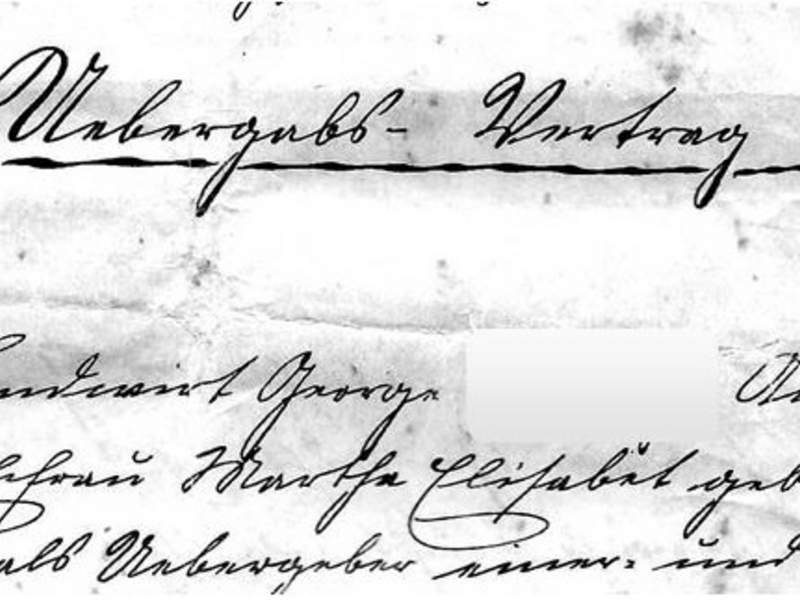 Uebergabs- Vertrag
andwirt George
hefrau Martha Elisabet geb
als Uebergeber einer- und